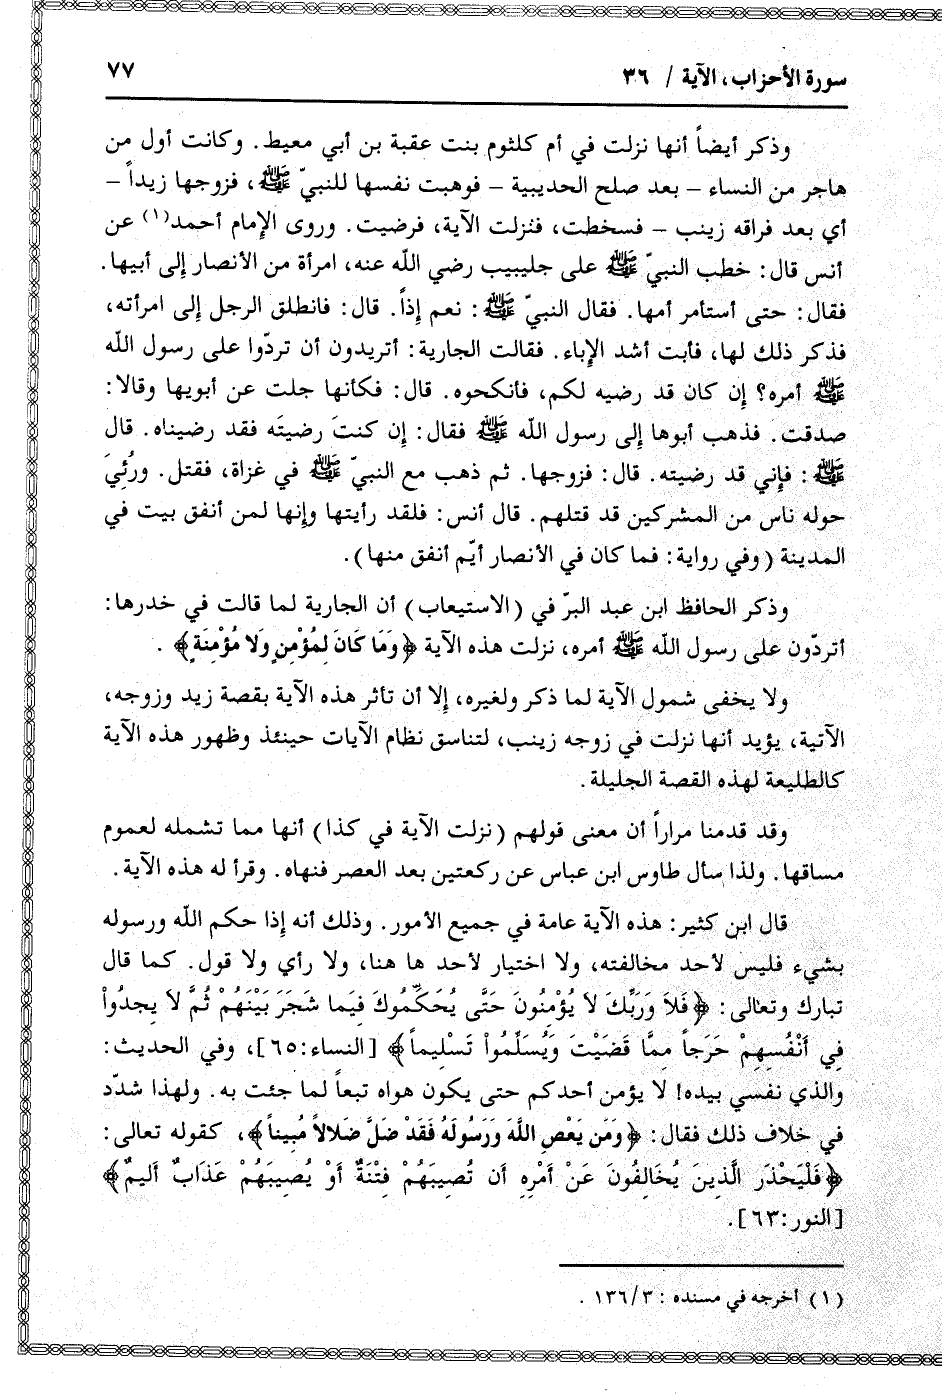 سورة الأحزاب، الآية / ٣٦
٧٧
وذكر أيضاً أنها نزلت في أم كلثوم بنت عقبة بن أبي معيط. وكانت أول من
هاجر من النساء – بعد صلح الحديبية – فوهبت نفسها للنبيّ ﷺ، فزوجها زيداً –
أي بعد فراقه زينب – فسخطت، فنزلت الآية، فرضيت. وروى الإمام أحمد(١) عن
أنس قال: خطب النبيّ ﷺ على جليبيب رضي اللّه عنه، امرأة من الأنصار إلى أبيها.
فقال: حتى أستأمر أمها. فقال النبيّ ﷺ: نعم إذاً. قال: فانطلق الرجل إلى امرأته،
فذكر ذلك لها، فأبت أشد الإباء. فقالت الجارية: أتريدون أن تردّوا على رسول اللّه
ﷺ أمره؟ إن كان قد رضيه لكم، فأنكحوه. قال: فكأنها جلت عن أبويها وقالا:
صدقت. فذهب أبوها إلى رسول اللّه ﷺ فقال: إن كنتَ رضيتَه فقد رضيناه. قال
ﷺ: فإني قد رضيته. قال: فزوجها. ثم ذهب مع النبيّ ﷺ في غزاة، فقتل. ورُئِيَ
حوله ناس من المشركين قد قتلهم. قال أنس: فلقد رأيتها وإنها لمن أنفق بيت في
المدينة (وفي رواية: فما كان في الأنصار أيّم أنفق منها).
وذكر الحافظ ابن عبد البرّ في (الاستيعاب) أن الجارية لما قالت في خدرها:
أتردّون على رسول اللّه ﷺ أمره، نزلت هذه الآية ﴿وَمَا كَانَ لِمُؤْمِنٍ وَلَا مُؤْمِنَةٍ﴾.
ولا يخفى شمول الآية لما ذكر ولغيره، إلا أن تأثر هذه الآية بقصة زيد وزوجه،
الآتية، يؤيد أنها نزلت في زوجه زينب، لتناسق نظام الآيات حينئذ وظهور هذه الآية
كالطليعة لهذه القصة الجليلة.
وقد قدمنا مراراً أن معنى قولهم (نزلت الآية في كذا) أنها مما تشمله لعموم
مساقها. ولذا سأل طاوس ابن عباس عن ركعتين بعد العصر فنهاه. وقرأ له هذه الآية.
قال ابن كثير: هذه الآية عامة في جميع الأمور. وذلك أنه إذا حكم اللّه ورسوله
بشيء فليس لأحد مخالفته، ولا اختيار لأحد ها هنا، ولا رأي ولا قول. كما قال
تبارك وتعالى: ﴿فَلاَ وَرَبِّكَ لاَ يُؤْمِنُونَ حَتَّى يُحَكِّمُوكَ فِيمَا شَجَرَ بَيْنَهُمْ ثُمَّ لاَ يَجِدُواْ
فِي أَنْفُسِهِمْ حَرَجاً مِمَّا قَضَيْتَ وَيُسَلِّمُواْ تَسْلِيماً﴾ [النساء:٦٥]، وفي الحديث:
والذي نفسي بيده! لا يؤمن أحدكم حتى يكون هواه تبعاً لما جئت به. ولهذا شدّد
في خلاف ذلك فقال: ﴿وَمَن يَعْصِ اللَّهَ وَرَسُولَهُ فَقَدْ ضَلَّ ضَلاَلاً مُبِيناً﴾، كقوله تعالى:
﴿فَلْيَحْذَرِ الَّذِينَ يُخَالِفُونَ عَنْ أَمْرِهِ أَن تُصِيبَهُمْ فِتْنَةٌ أَوْ يُصِيبَهُمْ عَذَابٌ أَلِيمٌ﴾
[النور:٦٣].
(١) أخرجه في مسنده: ١٣٦/٣.